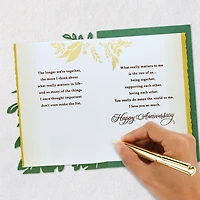 The longer we're together,
the more I think about
what really matters in life–
and so many of the things
I once thought important
don't even make the list.
What really matters to me
is the two of us...
being together,
supporting each other,
loving each other.
You really do mean the world to me.
I love you so much.
Happy Anniversary